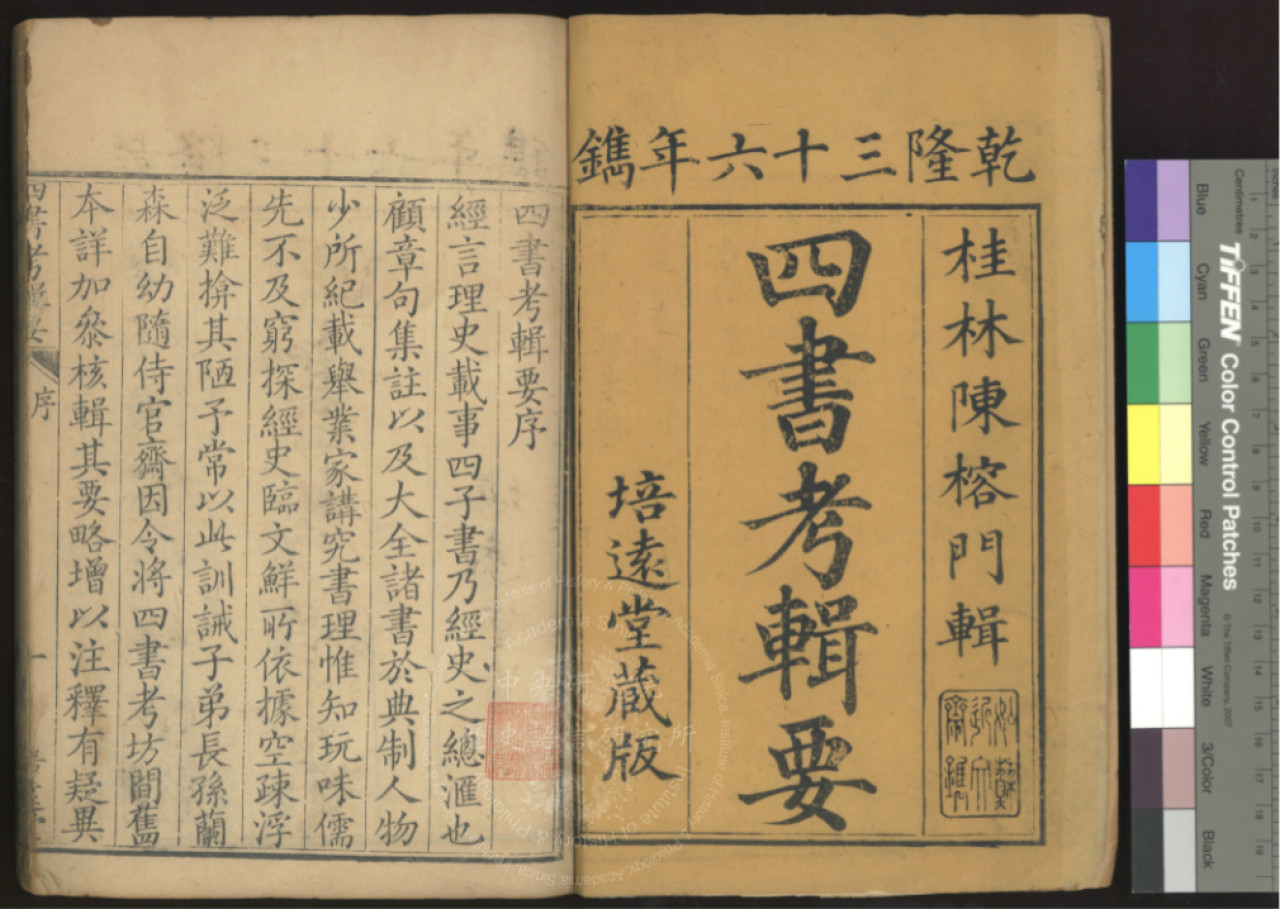 乾隆三十六年鐫
桂林陳榕門輯
四書考輯要
培遠堂蔵版
四書考輯要序
經言理史載事四子書乃經史之總滙也
顧章句集註以及大全諸書於典制人物
少所紀載舉業家講究書理惟知玩味儒
先不及窮探經史臨文鮮所依據空疎浮
泛難揜其陋予常以此訓誡子弟長孫蘭
森自幼隨侍官齋因令將四書考坊間舊
本詳加叅核輯其要略增以注釋有疑異
四書考輯要
序
一
中央研究院
史語言研究所
Institute of History & Philology, Academia Sinica
Centimetres
TIFFEN Color Control Patches
© The Tiffen Company, 2007
Blue
Cyan
Green
Yellow
Red
Magenta
White
3/Color
Black
1
2
3
4
5
6
7
8
9
10
11
12
13
14
15
16
17
18
19